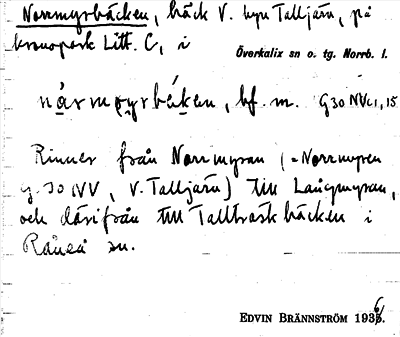 Norrmyrbäcken, bäck V. hyn Talljärn, på
kronopark Litt. C, i
Överkalix sn o. tg. Norrb. l.
bf. m. G30 NV
Rinner från Norrmyran (=Norrmyren
g. 30 NV, V. Talljärn) till Långmyran,
och därifrån till Tallträskbäcken i
Råneå sn.
EDVIN BRÄNNSTRÖM 1936.